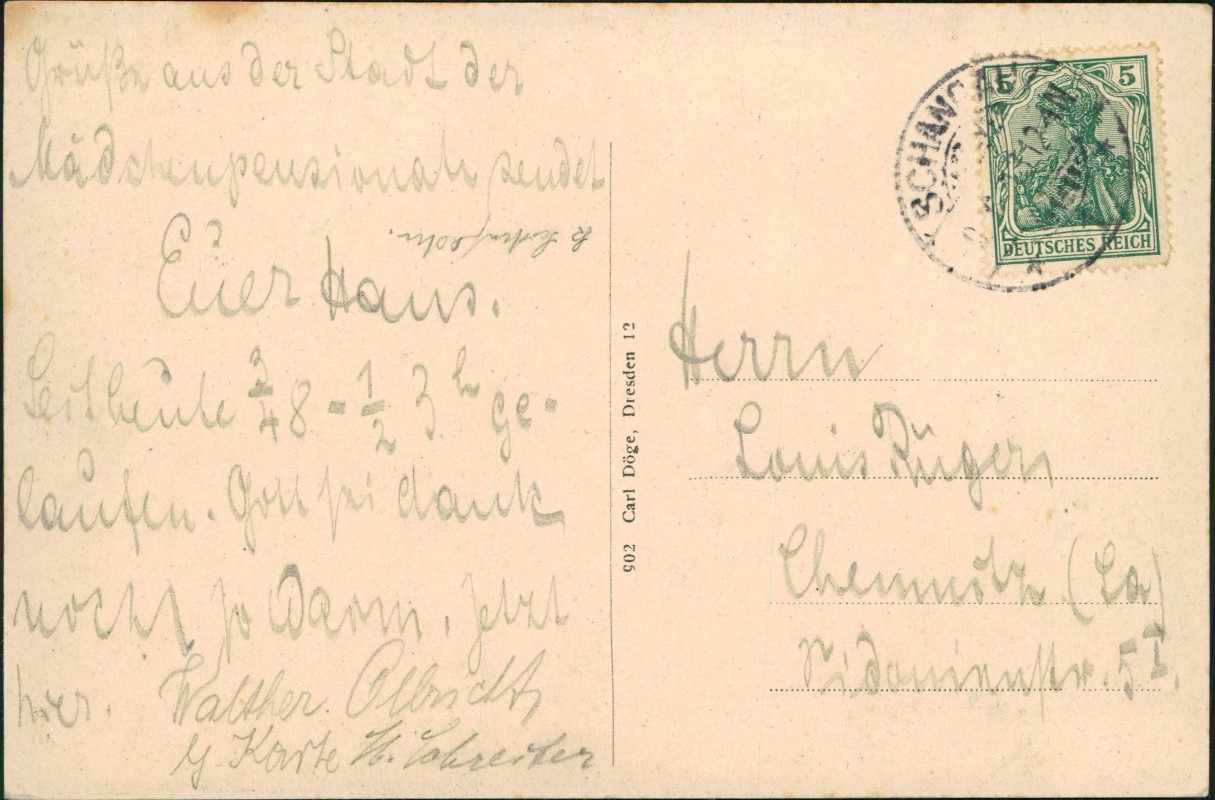 Grüße aus der Stadt der
Mädchenpensionate sendet
Euer Hans.
Seit heute 3/4 8 - 1/2 3 h ge-
laufen. Gott sei dank
nicht so warm. Jetzt
hier. Walther Olbricht,
Karte H. Schreiter
902 Carl Döge, Dresden 12
SCHANDAU
5 5
DEUTSCHES REICH
Herrn
Louis Rüger,
Chemnitz (Sa)
Sidonienstr. 5 I.